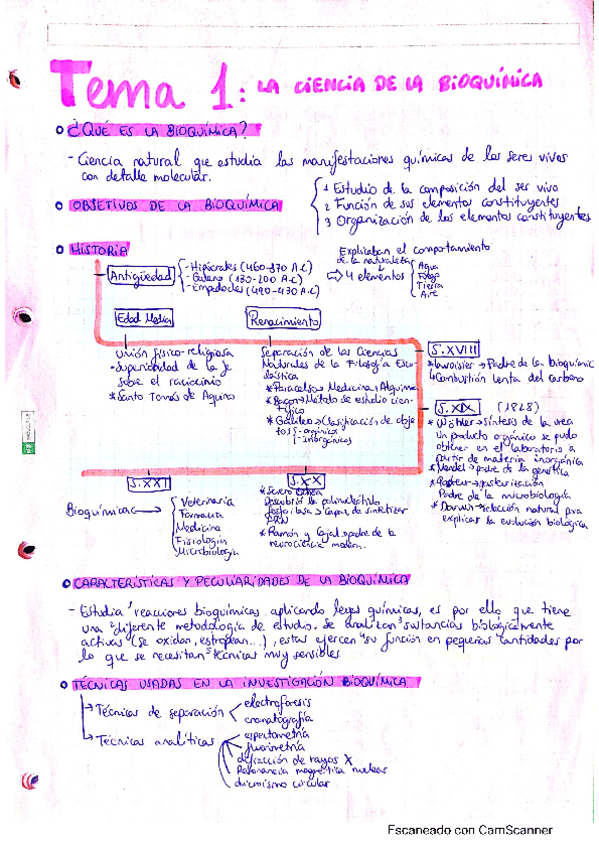 Tema 1: LA CIENCIA DE LA BIOQUÍMICA
¿QUÉ ES LA BIOQUÍMICA?
- Ciencia natural que estudia las manifestaciones químicas de los seres vivos
con detalle molecular.
OBJETIVOS DE LA BIOQUÍMICA
1 Estudio de la composición del ser vivo
2 Función de sus elementos constituyentes
3 Organización de los elementos constituyentes
HISTORIA
Antigüedad
- Hipócrates (460-370 A.C)
- Galeno (130-200 A.C)
- Empédocles (490-430 A.C)
Explicaban el comportamiento
de la naturaleza
4 elementos
Agua
Fuego
Tierra
Aire
Edad Media
Unión físico-religiosa
- Superioridad de la fe
sobre el raciocinio
* Santo Tomás de Aquino
Renacimiento
Separación de las Ciencias
Naturales de la Filosofía Esco-
lástica
* Paracelso → Medicina + Alquimia
* Bacon → Método de estudio cien-
tífico
* Galileo → Clasificación de obje
tos
- orgánicos
- inorgánicos
S.XVIII
* Lavoisier → Padre de la bioquímic
Combustión lenta del carbono
S.XIX (1828)
* Wöhler → Síntesis de la urea
Un producto orgánico se pudo
obtener en el laboratorio a
partir de materia inorgánica
* Mendel → padre de la genética
* Pasteur → pasteurización
Padre de la microbiología
* Darwin → selección natural para
explicar la evolución biológica
S.XX
* Severo Ochoa
Descubrió la polinucleótido
fosforilasa → capaz de sintetizar
ARN
* Ramón y Cajal → padre de la
neurociencia modern.
S.XXI
Bioquímica
Veterinaria
Farmacia
Medicina
Fisiología
Microbiología
CARACTERÍSTICAS Y PECULIARIDADES DE LA BIOQUÍMICA
- Estudia 1 reacciones bioquímicas aplicando leyes químicas, es por ello que tiene
una 2 diferente metodología de estudio. Se analizan 3 sustancias biológicamente
activas (se oxidan, estropean...), estas ejercen 4 su función en pequeñas cantidades por
lo que se necesitan 5 técnicas muy sensibles
TÉCNICAS USADAS EN LA INVESTIGACIÓN BIOQUÍMICA
Técnicas de separación
electroforesis
cromatografía
Técnicas analíticas
espectometría
fluorimetría
difracción de rayos X
Resonancia magnética nuclear
dicroismo circular
Escaneado con CamScanner